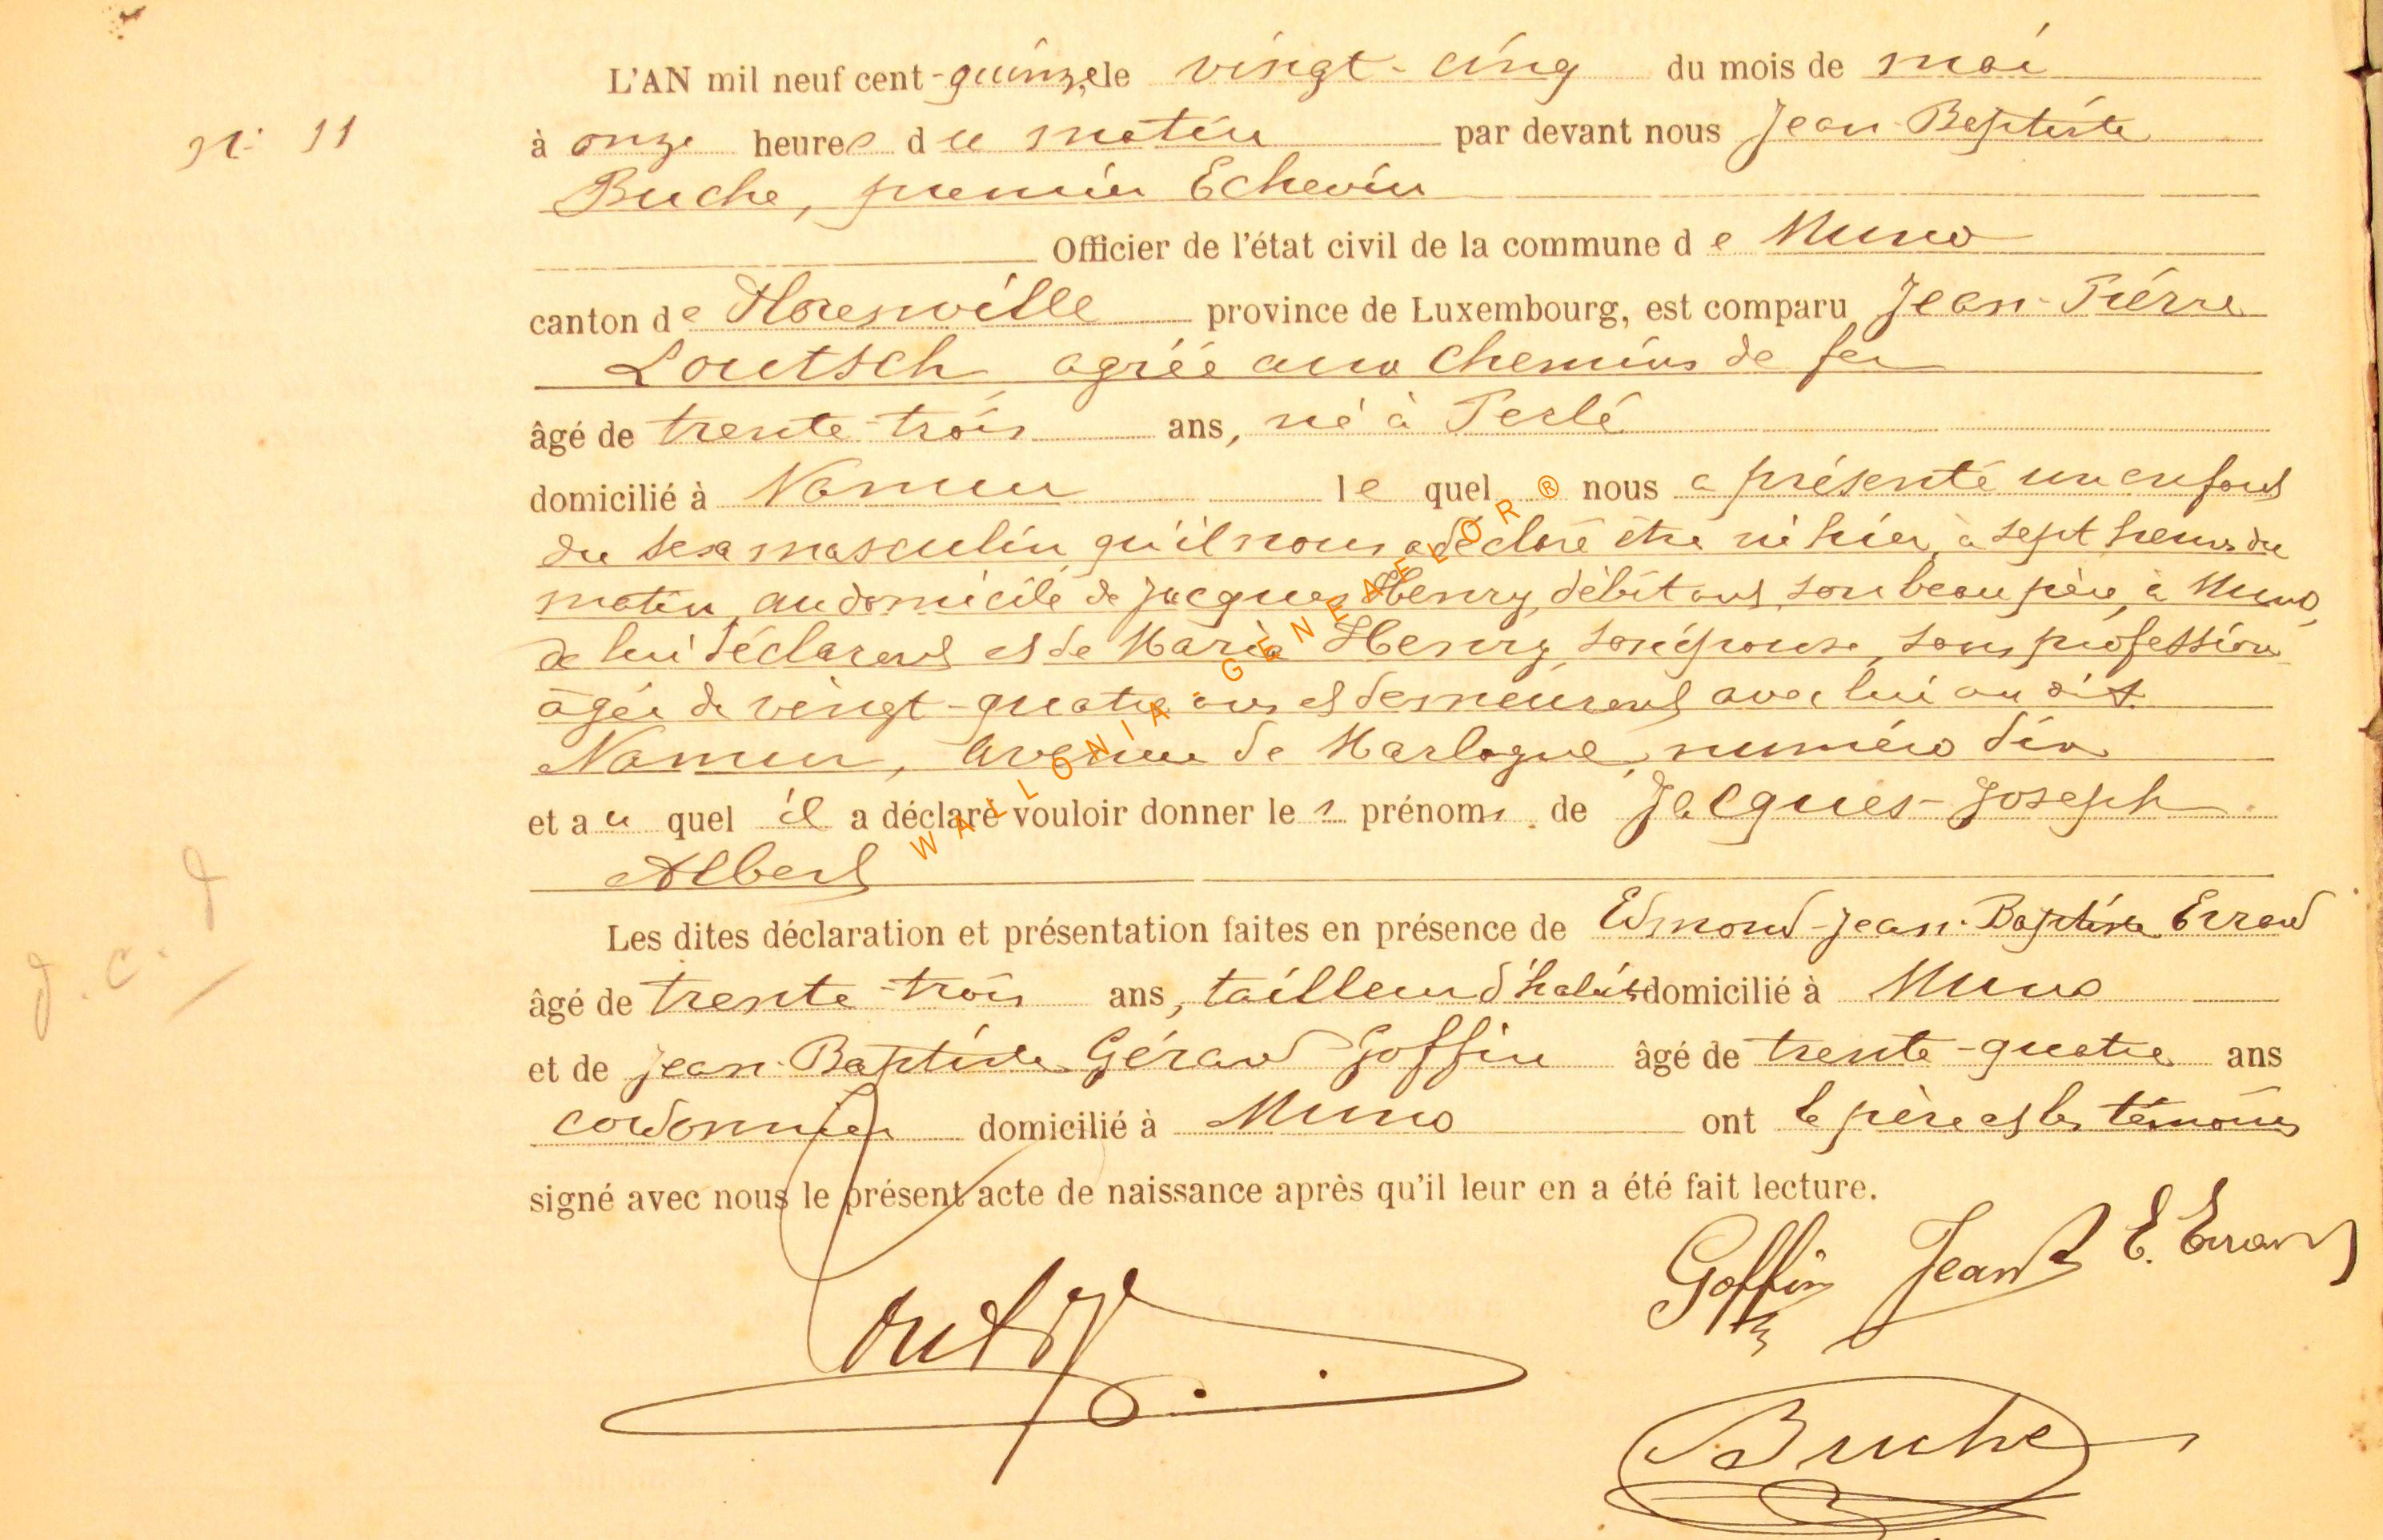 L'AN mil neuf cent-quinze, le vingt-cinq du mois de mai
N° 11
à onze heures du matin par devant nous Jean-Baptiste
Buche, premier Echevin
Officier de l'état civil de la commune de Muno
canton de Florenville province de Luxembourg, est comparu Jean-Pierre
Loutsch, agréé aux chemins de fer
âgé de trente-trois ans, né à Perlé
domicilié à Namur lequel nous a présenté un enfant
du sexe masculin, qu'il nous a déclaré être né hier, à sept heures du
matin, au domicile de Jacques Henry, débitant, son beau père, à Muno,
de lui déclarant et de Maria Henry, son épouse, sans profession
âgée de vingt-quatre ans et demeurant avec lui au dit
Namur, Avenue de Marlagne, numéro dix
et au quel il a déclaré vouloir donner les prénoms de Jacques-Joseph
Albert
Les dites déclaration et présentation faites en présence de Edmond-Jean-Baptiste Errard
âgé de trente-trois ans, tailleur d'habits domicilié à Muno
et de Jean-Baptiste Gérard Goffin âgé de trente-quatre ans
cordonnier domicilié à Muno ont le père et les témoins
signé avec nous le présent acte de naissance après qu'il leur en a été fait lecture.
Goffin Jean B E. Errard
Buche
WALLONIA-GENEALOR®